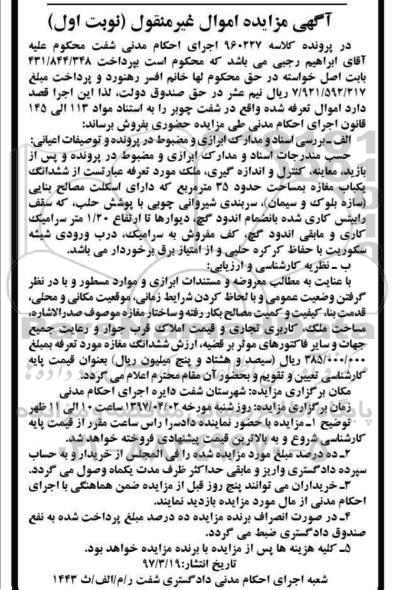 آگهی مزایده اموال غیرمنقول (نوبت اول)
در پرونده کلاسه ۹۶۰۲۲۷ اجرای احکام مدنی شفت محکوم علیه
آقای ابراهیم رجبی می باشد که محکوم است بپرداخت ۴۳۱/۸۴۴/۳۴۸
بابت اصل خواسته در حق محکوم لها خانم افسر رهنورد و پرداخت مبلغ
۷/۹۲۱/۵۹۲/۲۱۷ ریال نیم عشر در حق صندوق دولت، لذا این اجرا قصد
دارد اموال تعرفه شده واقع در شفت چوبر را به استناد مواد ۱۱۳ الی ۱۴۵
قانون اجرای احکام مدنی طی مزایده حضوری بفروش برساند:
الف ـ بررسی اسناد و مدارک ابرازی و مضبوط در پرونده و توصیفات اعیانی:
حسب مندرجات اسناد و مدارک ابرازی و مضبوط در پرونده و پس از
بازدید، معاینه، کنترل و اندازه گیری، ملک مورد تعرفه عبارتست از ششدانگ
یکباب مغازه بمساحت حدود ۳۵ مترمربع که دارای اسکلت مصالح بنایی
(سازه بلوک و سیمان)، سربندی شیروانی چوبی با پوشش حلب، که سقف
رابیتس کاری شده بانضمام اندود گچ، دیوارها تا ارتفاع ۱/۲۰ متر سرامیک
کاری و مابقی اندود گچ، کف مفروش به سرامیک، درب ورودی شیشه
سکوریت با حفاظ کرکره حلبی و از امتیاز برق برخوردار می باشد.
ب ـ نظریه کارشناسی و ارزیابی:
با عنایت به مطالب معروضه و مستندات ابرازی و موارد مسطور و با در نظر
گرفتن وضعیت عمومی و با لحاظ کردن شرایط زمانی، موقعیت مکانی و محلی،
قدمت بنا، کیفیت و کمیت مصالح بکار رفته و ساختار مغازه موصوف صدرالاشاره،
مساحت ملک، کاربری تجاری و قیمت املاک قرب جوار و رعایت جمیع
جهات و سایر فاکتورهای موثر بر قضیه، ارزش ششدانگ مغازه مورد تعرفه بمبلغ
۳۸۵/۰۰۰/۰۰۰ ریال (سیصد و هشتاد و پنج میلیون ریال) بعنوان قیمت پایه
کارشناسی تعیین و تقویم و بحضور آن مقام محترم اعلام می گردد.
مکان برگزاری مزایده: شهرستان شفت دایره اجرای احکام مدنی
زمان برگزاری مزایده: روز شنبه مورخه ۱۳۹۷/۰۴/۰۲ ساعت ۱۰ الی ۱۱ ظهر
توضیح ۱ـ مزایده با حضور نماینده دادسرا راس ساعت مقرر از قیمت پایه
کارشناسی شروع و به بالاترین قیمت پیشنهادی فروخته خواهد شد.
۲ـ ده درصد مبلغ مورد مزایده شده را فی المجلس از خریدار و به حساب
سپرده دادگستری واریز و مابقی حداکثر ظرف مدت یکماه وصول می گردد.
۳ـ خریداران می توانند پنج روز قبل از مزایده ضمن هماهنگی با اجرای
احکام مدنی از مال مورد مزایده بازدید نمایند.
۴ـ در صورت انصراف برنده مزایده ده درصد مبلغ پرداخت شده به نفع
صندوق دادگستری ضبط می گردد.
۵ـ کلیه هزینه ها پس از مزایده با برنده مزایده خواهد بود.
تاریخ انتشار: ۹۷/۳/۱۹
شعبه اجرای احکام مدنی دادگستری شفت ر/م/الف/ث ۱۴۴۳